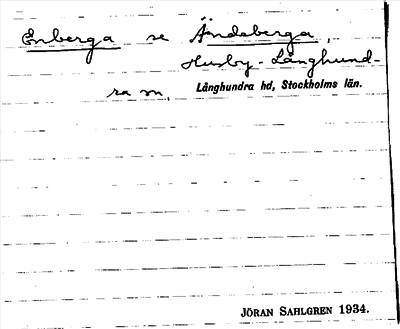 Enberga se Ändeberga,
Husby-Långhund-
ra sn, Långhundra hd, Stockholms län.
JÖRAN SAHLGREN 1934.